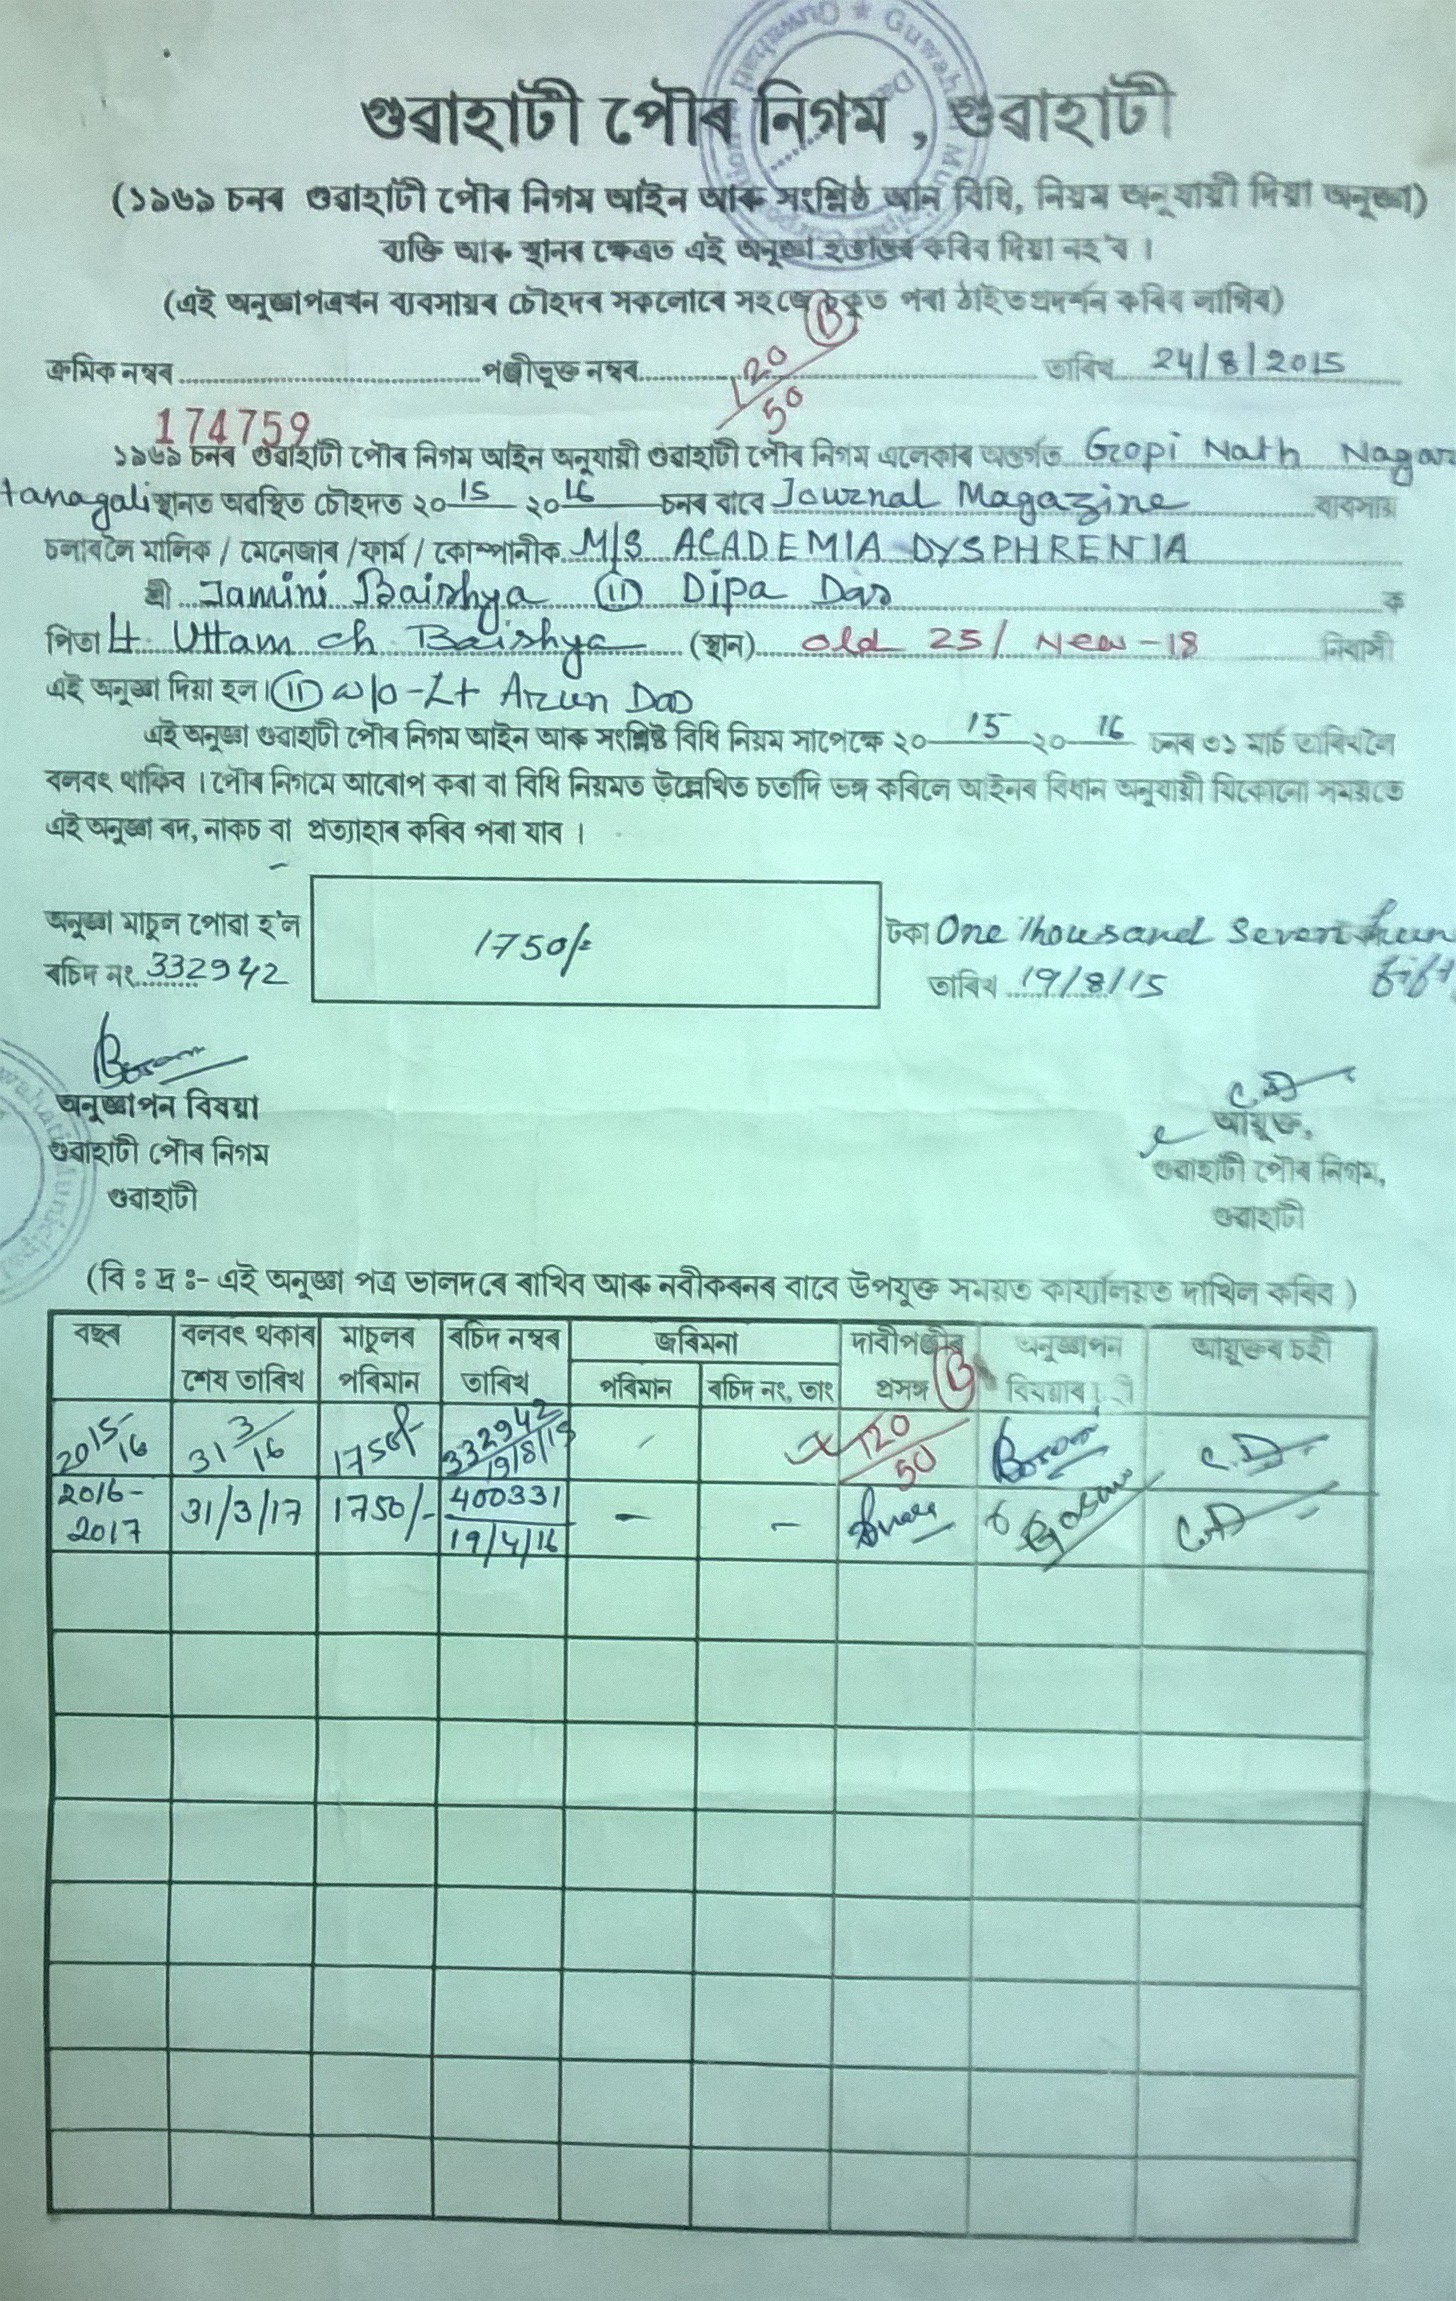 গুৱাহাটী পৌৰ নিগম , গুৱাহাটী
(১৯৬৯ চনৰ গুৱাহাটী পৌৰ নিগম আইন আৰু সংশ্লিষ্ঠ আন বিধি, নিয়ম অনুযায়ী দিয়া অনুজ্ঞা)
ব্যক্তি আৰু স্থানৰ ক্ষেত্ৰত এই অনুজ্ঞা হস্তান্তৰ কৰিব দিয়া নহ'ব ।
(এই অনুজ্ঞাপত্ৰখন ব্যবসায়ৰ চৌহদৰ সকলোৱে সহজে চকুত পৰা ঠাইত প্ৰদৰ্শন কৰিব লাগিব)
ক্ৰমিক নম্বৰ পঞ্জীভুক্ত নম্বৰ 120/50 (B) তাৰিখ 24/8/2015
174759
১৯৬৯ চনৰ গুৱাহাটী পৌৰ নিগম আইন অনুযায়ী গুৱাহাটী পৌৰ নিগম এলেকাৰ অন্তৰ্গত Gopi Nath Nagar
tanagali স্থানত অৱস্থিত চৌহদত ২০ 15 ২০ 16 চনৰ বাবে Journal Magazine ব্যবসায়
চলাবলৈ মালিক / মেনেজাৰ /ফাৰ্ম / কোম্পানীক M/S ACADEMIA DYSPHRENIA
শ্ৰী Jamini Baishya (II) Dipa Das ক
পিতা Lt Uttam ch Baishya (স্থান) old 25/ New-18 নিবাসী
এই অনুজ্ঞা দিয়া হল। (II) w/o-Lt Arun Das
এই অনুজ্ঞা গুৱাহাটী পৌৰ নিগম আইন আৰু সংশ্লিষ্ট বিধি নিয়ম সাপেক্ষে ২০ 15 ২০ 16 চনৰ ৩১ মাৰ্চ তাৰিখলৈ
বলবৎ থাকিব । পৌৰ নিগমে আৰোপ কৰা বা বিধি নিয়মত উল্লেখিত চৰ্তাদি ভঙ্গ কৰিলে আইনৰ বিধান অনুযায়ী যিকোনো সময়তে
এই অনুজ্ঞা ৰদ, নাকচ বা প্ৰত্যাহাৰ কৰিব পৰা যাব ।
অনুজ্ঞা মাচুল পোৱা হ'ল 1750/- টকা One Thousand Seven hun
ৰচিদ নং 332942 তাৰিখ 19/8/15
অনুজ্ঞাপন বিষয়া
গুৱাহাটী পৌৰ নিগম
গুৱাহাটী
আয়ুক্ত,
গুৱাহাটী পৌৰ নিগম,
গুৱাহাটী
(বি ঃ দ্ৰ ঃ- এই অনুজ্ঞা পত্ৰ ভালদৰে ৰাখিব আৰু নবীকৰনৰ বাবে উপযুক্ত সময়ত কাৰ্য্যালয়ত দাখিল কৰিব )
বছৰ বলবৎ থকাৰ মাচুলৰ ৰচিদ নম্বৰ জৰিমনা দাবীপঞ্জীৰ অনুজ্ঞাপন আয়ুক্তৰ চহী
শেষ তাৰিখ পৰিমান তাৰিখ পৰিমান ৰচিদ নং, তাং প্ৰসঙ্গ (B) বিষয়াৰ
2015-16 31/3/16 1750/- 332942 19/8/15 - 120/50
2016-2017 31/3/17 1750/- 400331 19/4/16 - -